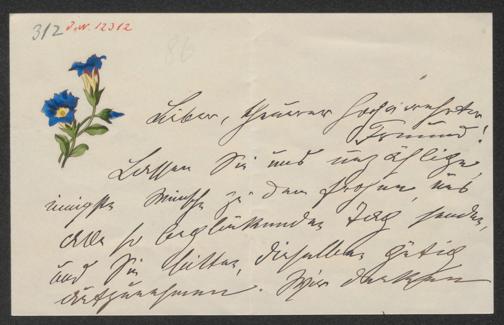 312 J.N. 12312
86
Lieber, theurer hochverehrter
Freund!
Lassen Sie uns unzählige,
innigste Wünsche zu dem frohen, uns
alle so beglückenden Tag senden,
und Sie bitten, dieselben gütig
aufzunehmen. Wir denken